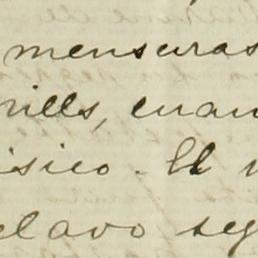 mensuras
nills, cuan
isico. El
clavo seg